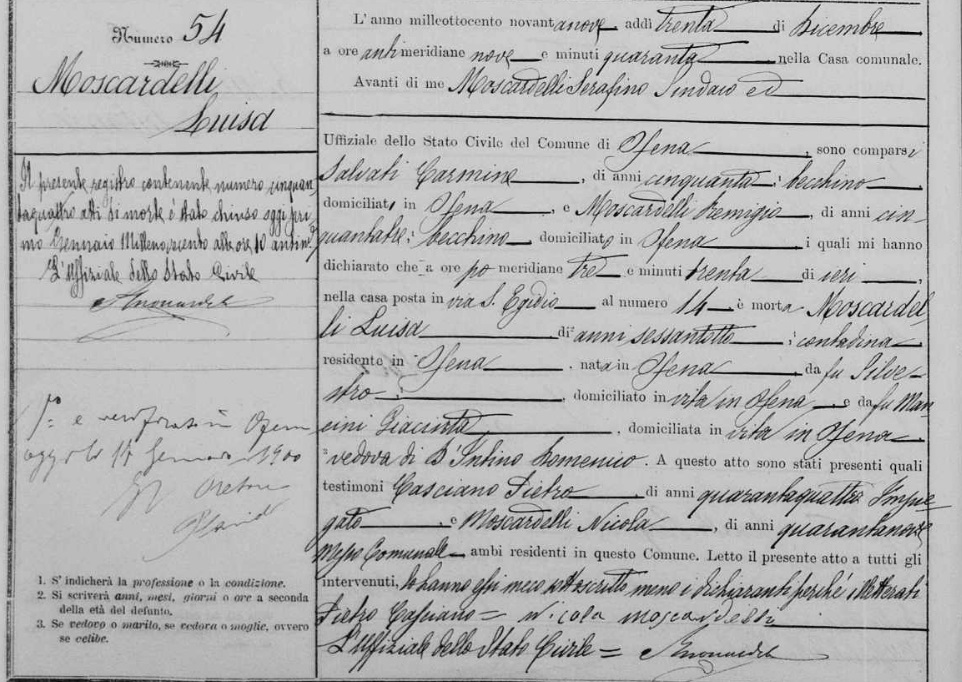 Numero 54
Moscardelli
Luisa
Il presente registro contenente numero cinquan
taquattro atti di morte è stato chiuso oggi pri
mo Gennaio Millenovecento alle ore 10 antim
L'Uffiziale dello Stato Civile
1. S' indicherà la professione o la condizione.
2. Si scriverà anni, mesi, giorni o ore a seconda
della età del defunto.
3. Se vedovo o marito, se vedova o moglie, ovvero
se celibe.
L' anno milleottocento novantanove, addì trenta di Dicembre,
a ore antimeridiane nove e minuti quaranta, nella Casa comunale.
Avanti di me Moscardelli Serafino Sindaco ed
Uffiziale dello Stato Civile del Comune di Ofena, sono comparsi
Salvati Carmine, di anni cinquanta, becchino,
domiciliato in Ofena, e Moscardelli Remigio, di anni cin
quantatre, becchino domiciliato in Ofena i quali mi hanno
dichiarato che a ore po meridiane tre e minuti trenta di ieri,
nella casa posta in via S. Egidio al numero 14 è morta Moscardel
li Luisa di anni sessantotto, contadina
residente in Ofena, nata in Ofena, da fu Silve
stro, domiciliato in vita in Ofena e da fu Man
cini Giacinta, domiciliata in vita in Ofena
vedova di D'Intino Domenico. A questo atto sono stati presenti quali
testimoni Casciano Pietro di anni quarantaquattro Impie
gato e Moscardelli Nicola, di anni quarantanove
Messo Comunale ambi residenti in questo Comune. Letto il presente atto a tutti gli
intervenuti, lo hanno essi meco sottoscritto meno i dichiaranti perché illetterati
Pietro Casciano = Nicola Moscardelli
L'Uffiziale dello Stato Civile =